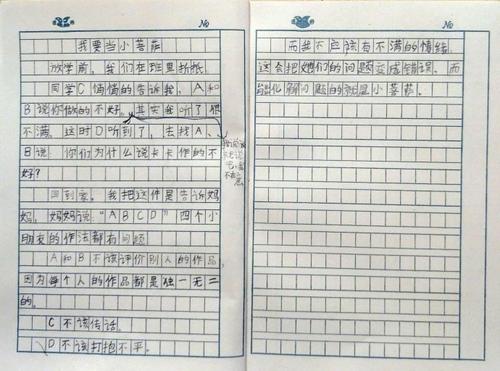 No
我要当小菩萨
放学前，我们在班里折纸
同学C悄悄的告诉我，A和
B说你做的不好。其实我听了很
不满。这时D听到了，去找A、
B说：你们为什么说卡卡作的不
好？
回到家。我把这件是告诉妈
妈，妈妈说："ABCD"四个小
朋友的作法都有问题
A和B不该评价别人的作品，
因为每个人的作品都是独一无二
的。
C不该传话。
D不该打抱不平。
No
而我不应该有不满的情绪
这会把她们的问题变成错误。而
能化解问题的就是小菩萨。